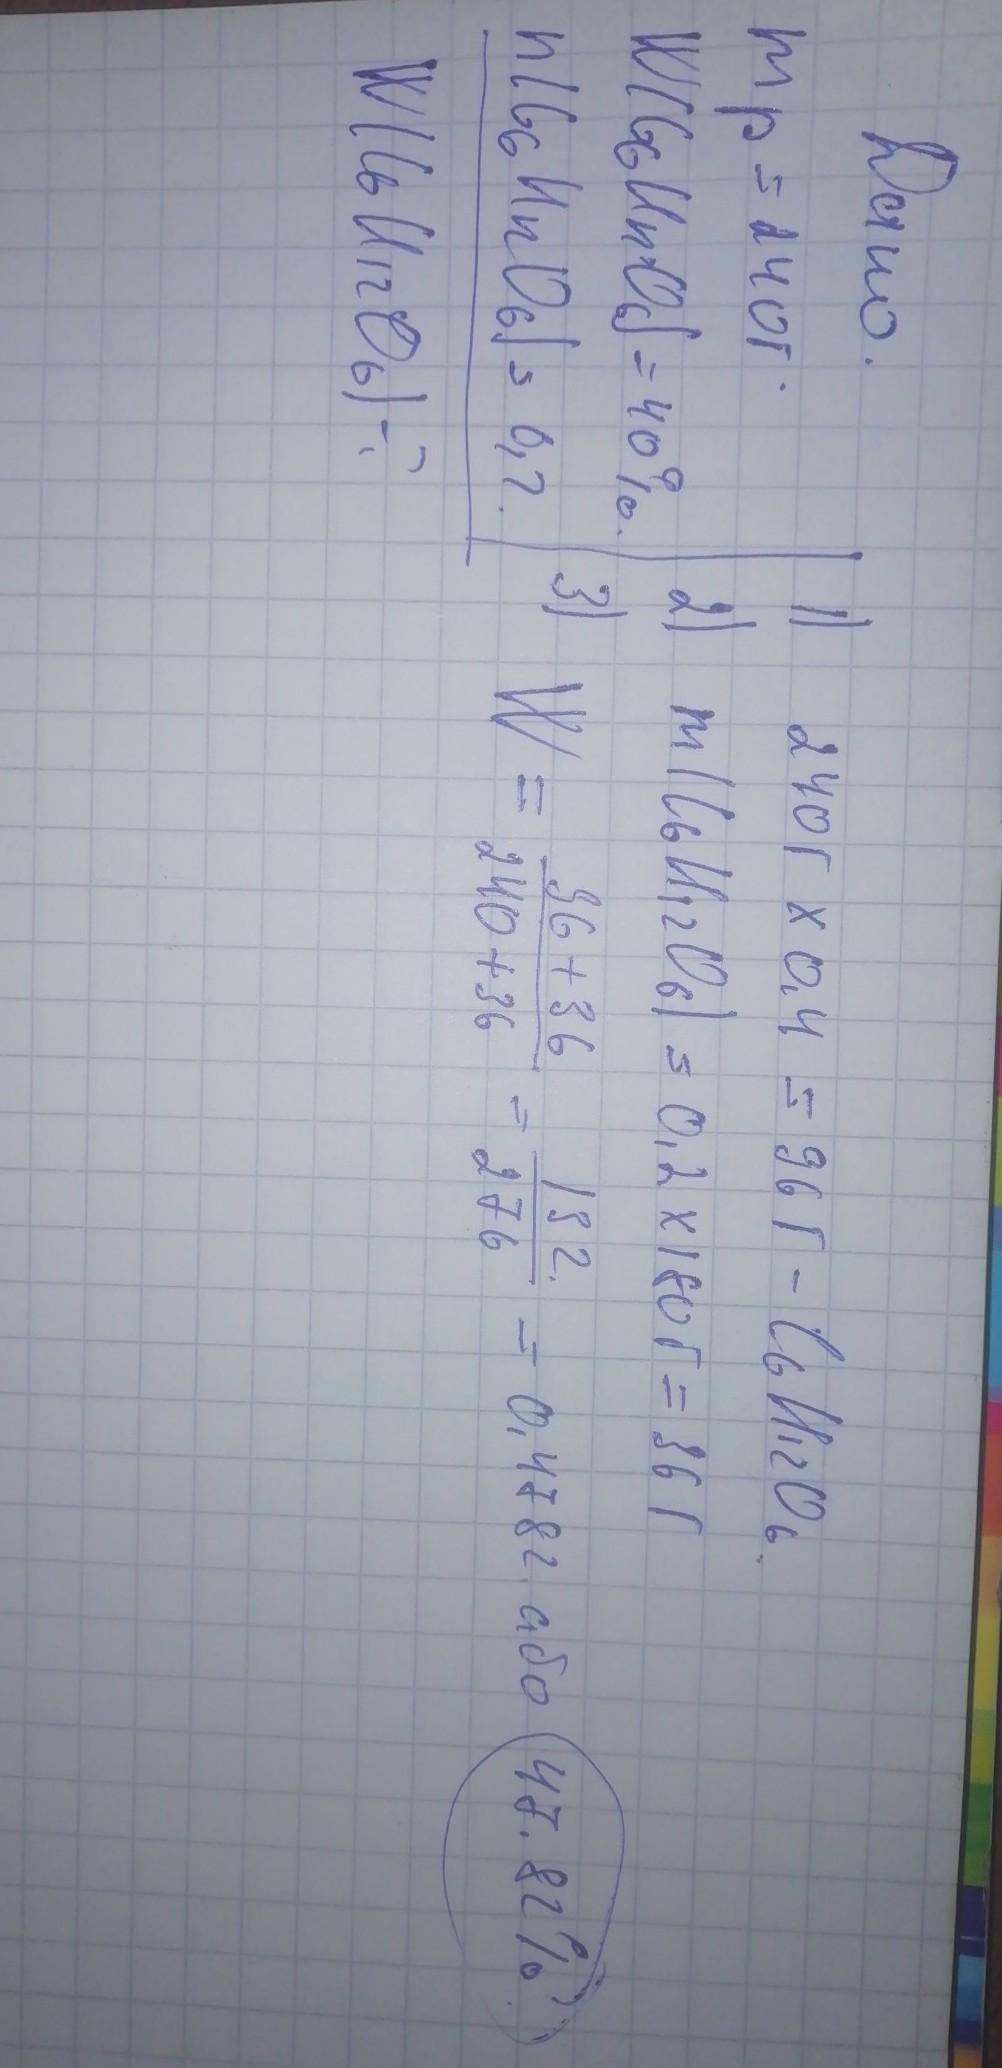 Дано.
mр = 240г.
W(C6H12O6) = 40%.
n(C6H12O6) = 0,2.
W(C6H12O6) - ?
1) 240г x 0,4 = 96г - C6H12O6.
2) m(C6H12O6) = 0,2 x 180г = 36г
3) W = 96+36 / 240+36 = 132. / 276 = 0,4782. або 47.82%.